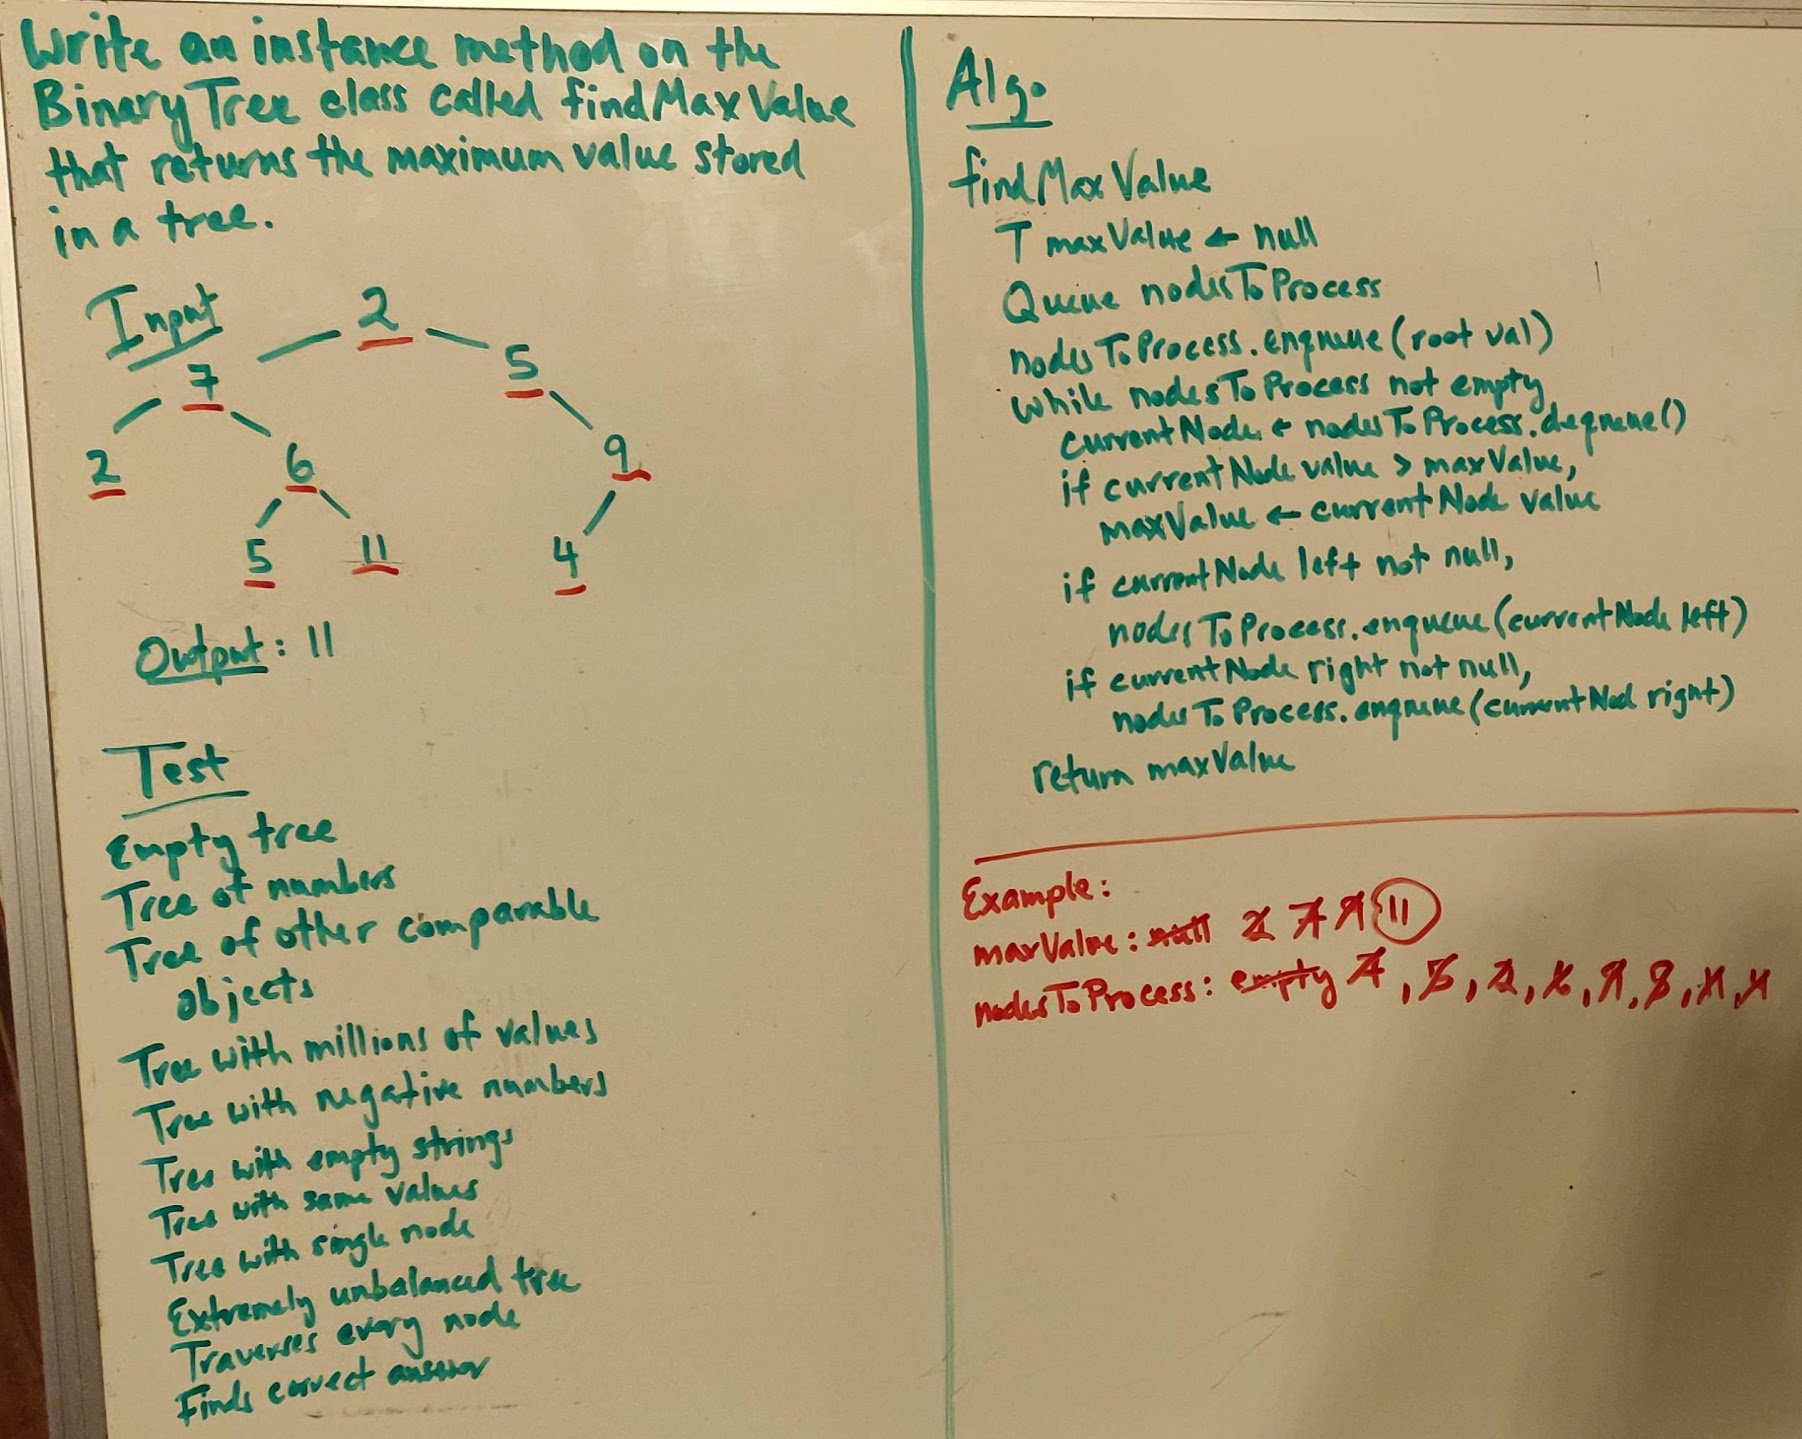 Write an instance method on the
Binary Tree class called findMaxValue
that returns the maximum value stored
in a tree.
Input
2
7 5
2 6 9
5 11 4
Output: 11
Test
Empty tree
Tree of numbers
Tree of other comparable
objects
Tree with millions of values
Tree with negative numbers
Tree with empty strings
Tree with same values
Tree with single node
Extremely unbalanced tree
Traverses every node
Finds correct answer
Algo
findMaxValue
T maxValue ← null
Queue nodesToProcess
nodesToProcess.enqueue(root val)
while nodesToProcess not empty
currentNode ← nodesToProcess.dequeue()
if currentNode value > maxValue,
maxValue ← currentNode value
if currentNode left not null,
nodesToProcess.enqueue(currentNode left)
if currentNode right not null,
nodesToProcess.enqueue(currentNod right)
return maxValue
Example:
maxValue: null 2 7 9 11
nodesToProcess: empty 7, 5, 2, 6, 9,